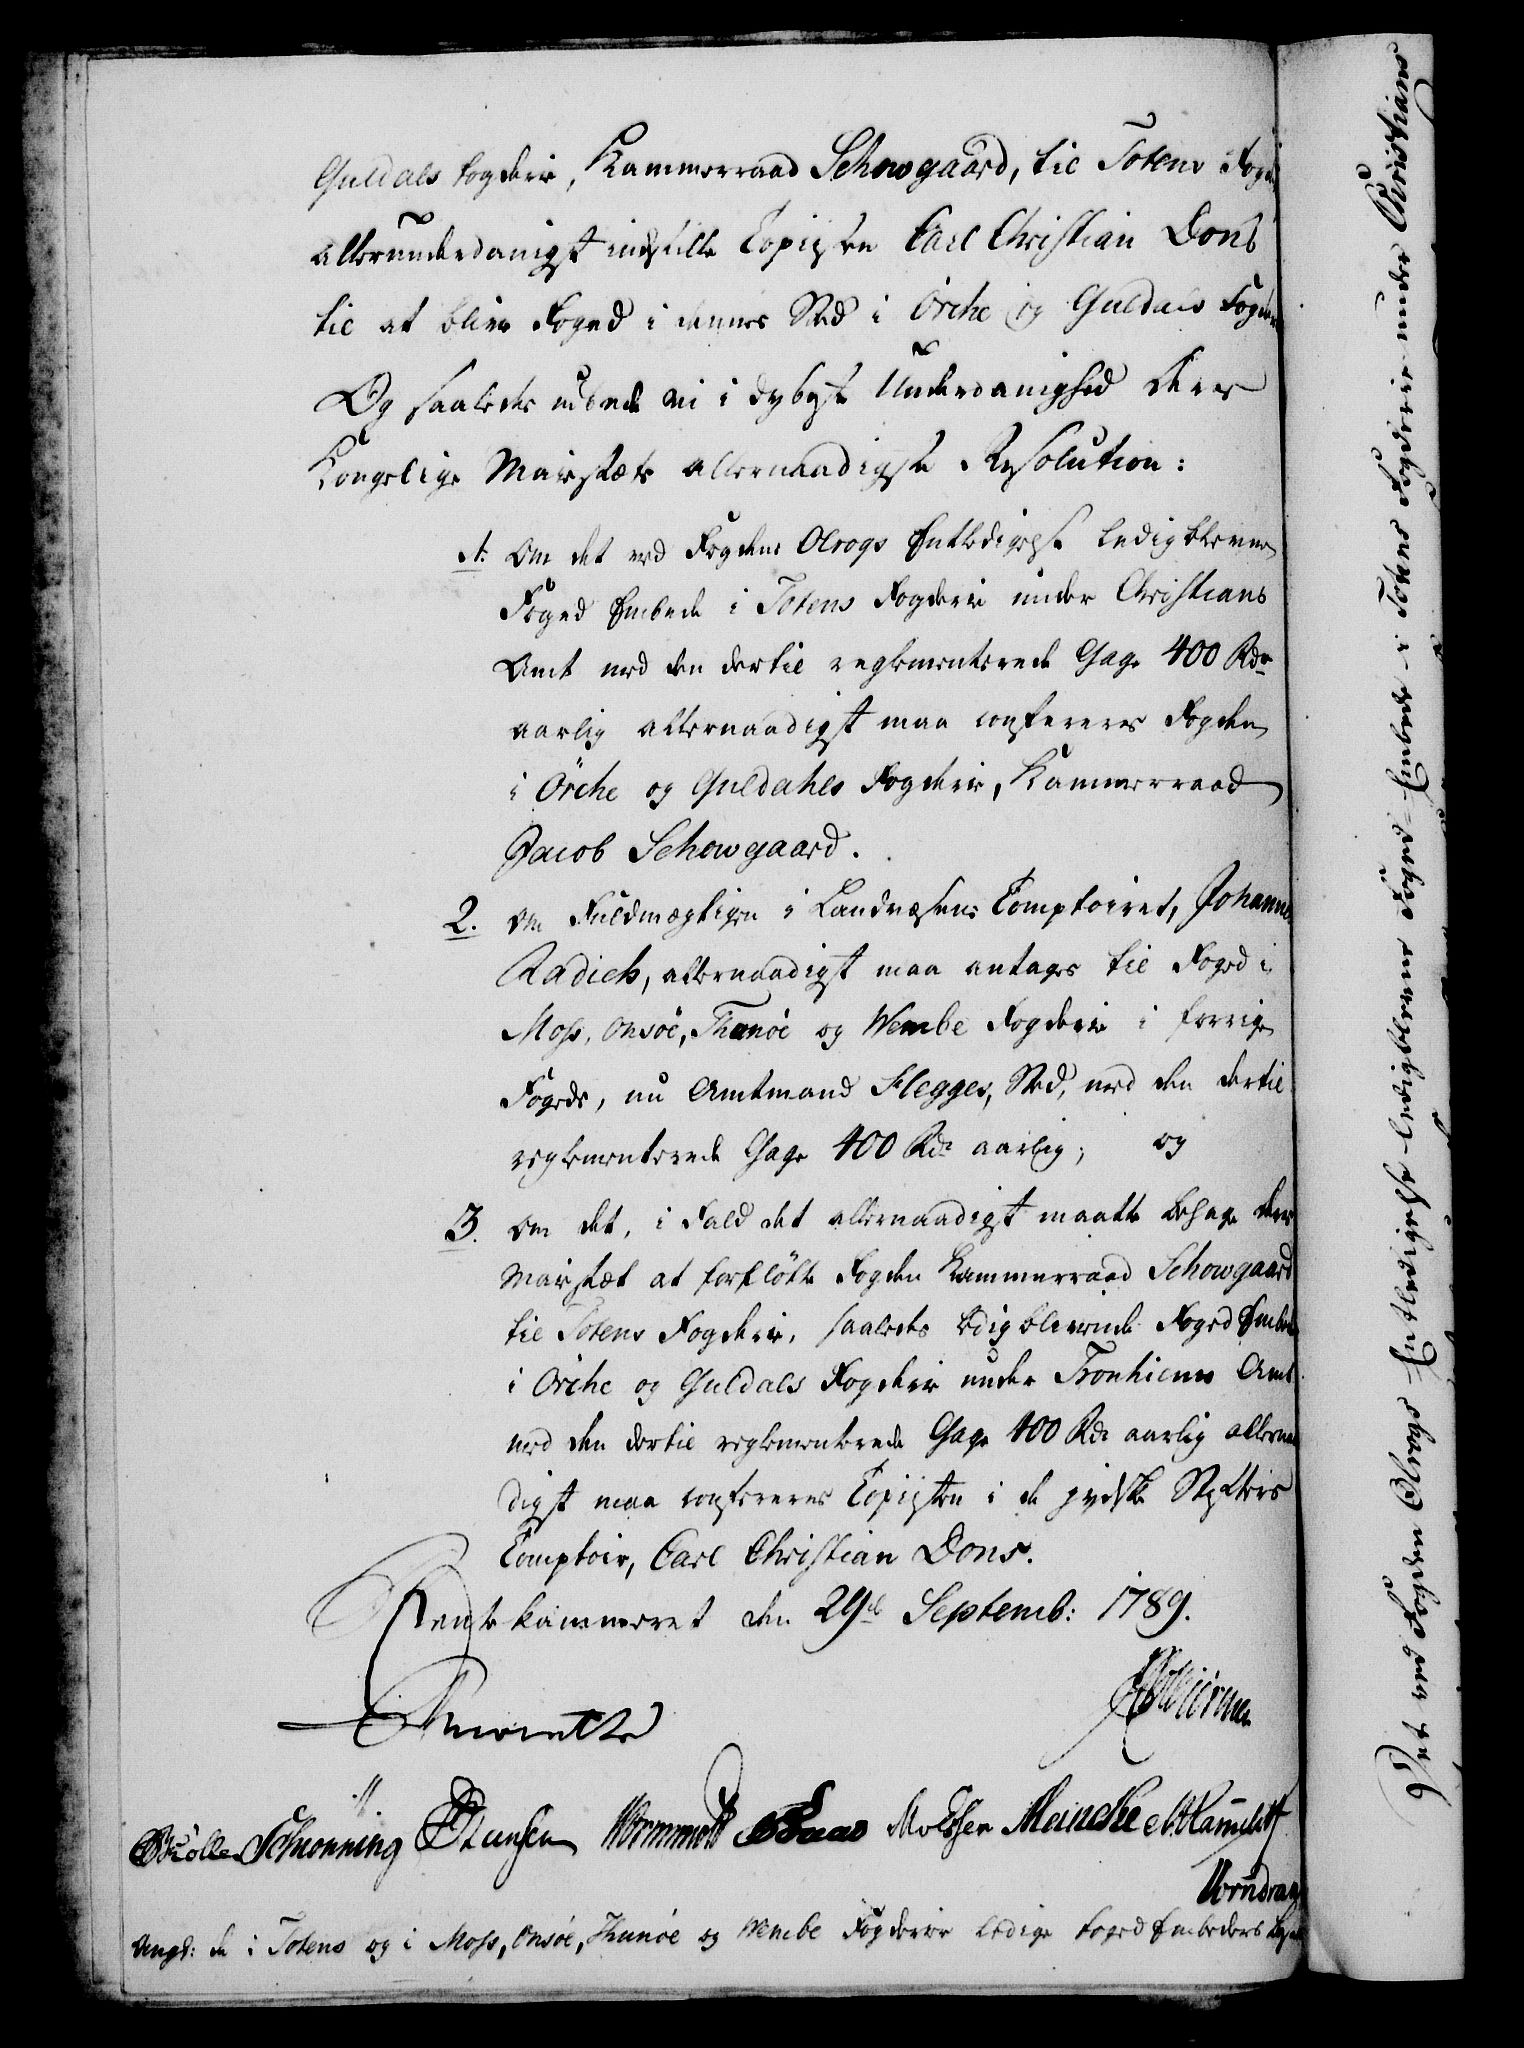 Guldals Fogderie, Kammerraad Schowgaard, til Totens Fogde
allerunderdanigst indstille Copiisten Carl Christian Dons
til at blive Foged i dennes Sted i Örche og Guldals Fogderie
Og saaledes udbede vi i dybeste Underdanighed Deres
Kongelige Majestæts allernaadigste Resolution:
1. Om det ved Fogden Olrogs Entledigelse ledig blevne
Foged Embede i Totens Fogderie under Christians
Amt med den dertil reglementerede Gage 400 Rdr
aarlig allernaadigst maa confereres Fogden
i Örche og Guldahls Fogderie, Kammerraad
Jacob Schowgaard.
2. Om Fuldmægtigen i Landvæsens Comptoiret, Johannes
Radich, allernaadigst maa antages til Foged i
Moss, Onsöe, Thunöe og Wembe Fogderie i forrige
Fogeds, nu Amtmand Flegges, Sted, med den dertil
reglementerede Gage 400 Rdr aarlig; og
3. Om det, i Fald det allernaadigst maatte behage Deres
Majestæt at forflötte Fogden Kammerraad Schowgaard
til Totens Fogderie, saaledes ledig blivende Foged Embede
i Örche og Guldals Fogderie under Tronhiems Amt
med den dertil reglementerede Gage 400 Rdr aarlig allernaa
digst maa confereres Copiisten i de jydske Stifters
Comptoir, Carl Christian Dons.
Rentekammeret den 29de Septemb: 1789.
Schonning Wormwold Meinche
Vorndran
Angl: de i Totens og i Moss, Onsöe, Thunöe og Wembe Fogderier ledige Foged Embeders
Det ved Fogden Olrogs Entledigelse ledigblevne Foged-Embede i Totens Fogderie under Christians